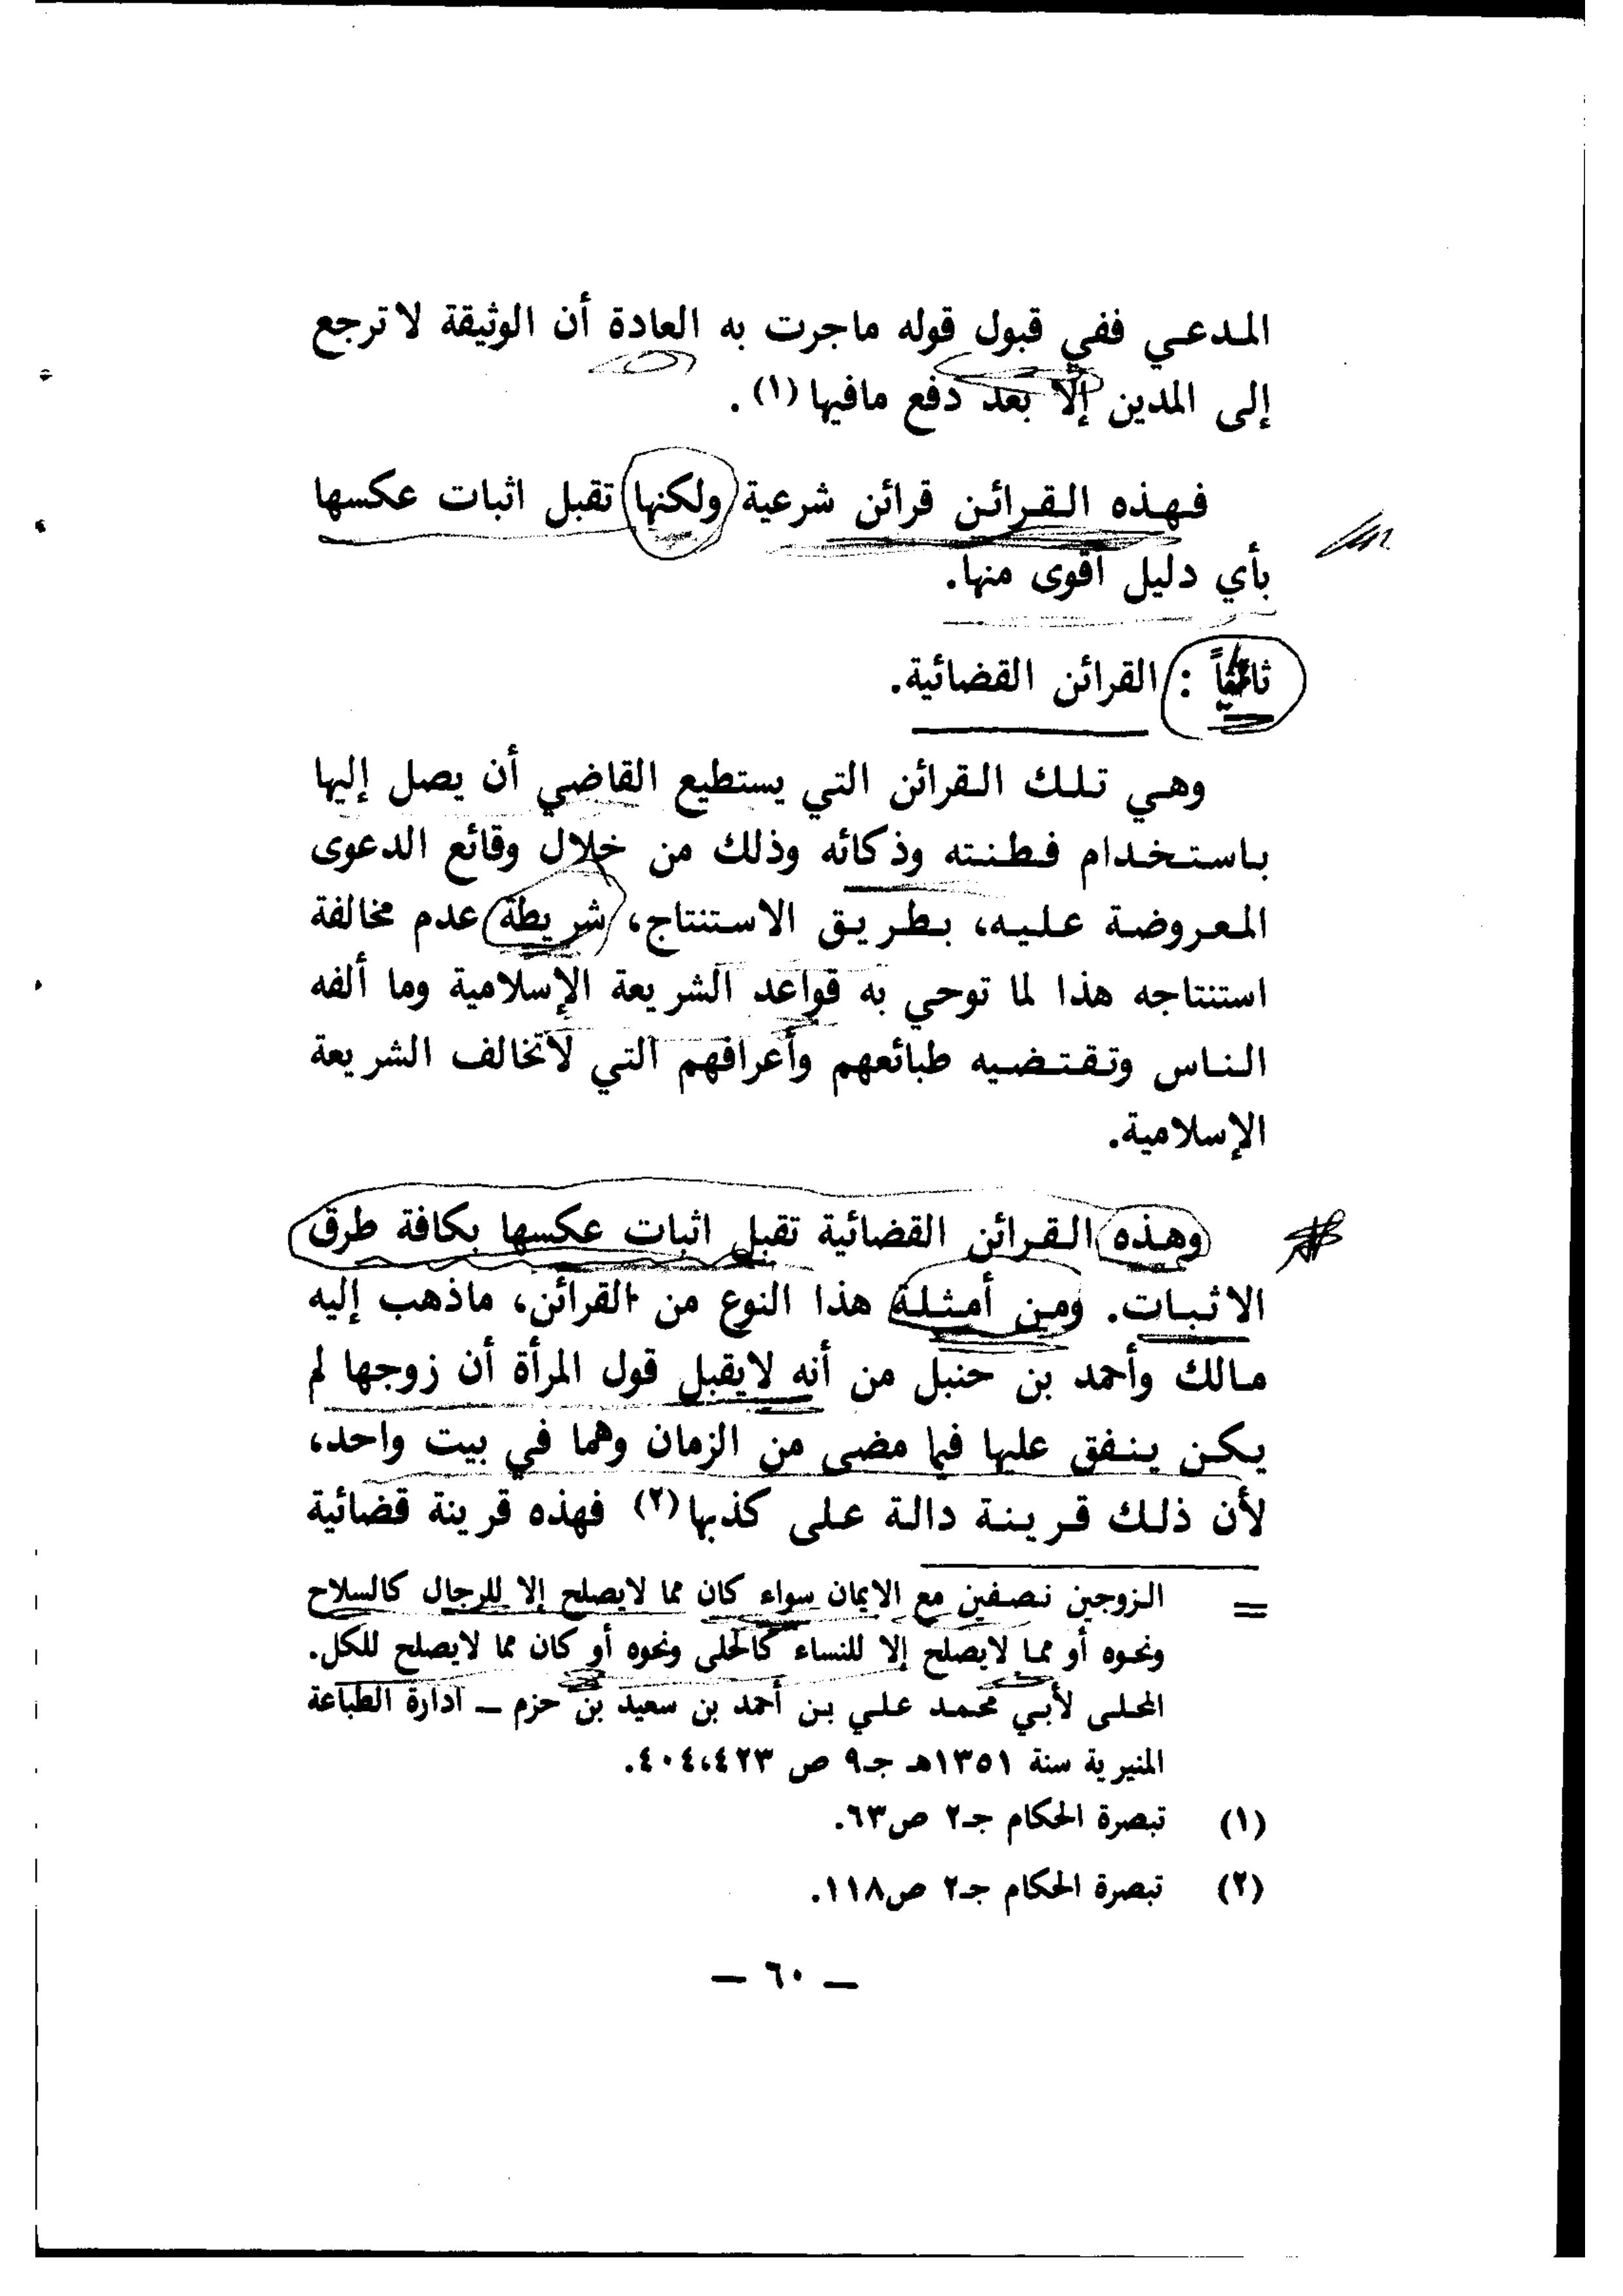 المدعي ففي قبول قوله ماجرت به العادة أن الوثيقة لا ترجع
إلى المدين إلّا بعد دفع مافيها (١) .
فهذه القرائن قرائن شرعية ولكنها تقبل اثبات عكسها
بأي دليل أقوى منها.
: القرائن القضائية.
وهي تلك القرائن التي يستطيع القاضي أن يصل إليها
باستخدام فطنته وذكائه وذلك من خلال وقائع الدعوى
المعروضة عليه، بطريق الاستنتاج، شريطة عدم مخالفة
استنتاجه هذا لما توحي به قواعد الشريعة الإسلامية وما ألفه
الناس وتقتضيه طبائعهم وأعرافهم التي لاتخالف الشريعة
الإسلامية.
وهذه القرائن القضائية تقبل اثبات عكسها بكافة طرق
الاثبات. ومن أمثلة هذا النوع من القرائن، ماذهب إليه
مالك وأحمد بن حنبل من أنه لايقبل قول المرأة أن زوجها لم
يكن ينفق عليها فيا مضى من الزمان وهما في بيت واحد،
لأن ذلك قرينة دالة على كذبها (٢) فهذه قرينة قضائية
= الزوجين نصفين مع الايمان سواء كان مما لايصلح إلا للرجال كالسلاح
ونحوه أو مما لايصلح إلا للنساء كالحلى ونحوه أو كان مما لايصلح للكل.
المحلى لأبي محمد علي بن أحمد بن سعيد بن حزم ــ ادارة الطباعة
المنيرية سنة ١٣٥١هـ جـ٩ ص ٤٠٤،٤٢٣.
(١) تبصرة الحكام جـ٢ ص٦٣.
(٢) تبصرة الحكام جـ٢ ص١١٨.
— ٦٠ —